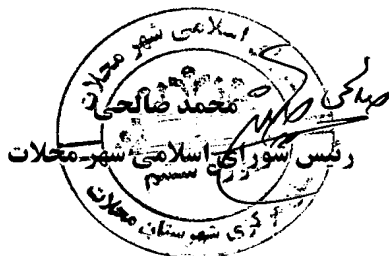 اسلامی شهر محلات
صالحی
محمد صالحی
رئیس شورای اسلامی شهر محلات
شهرستان محلات